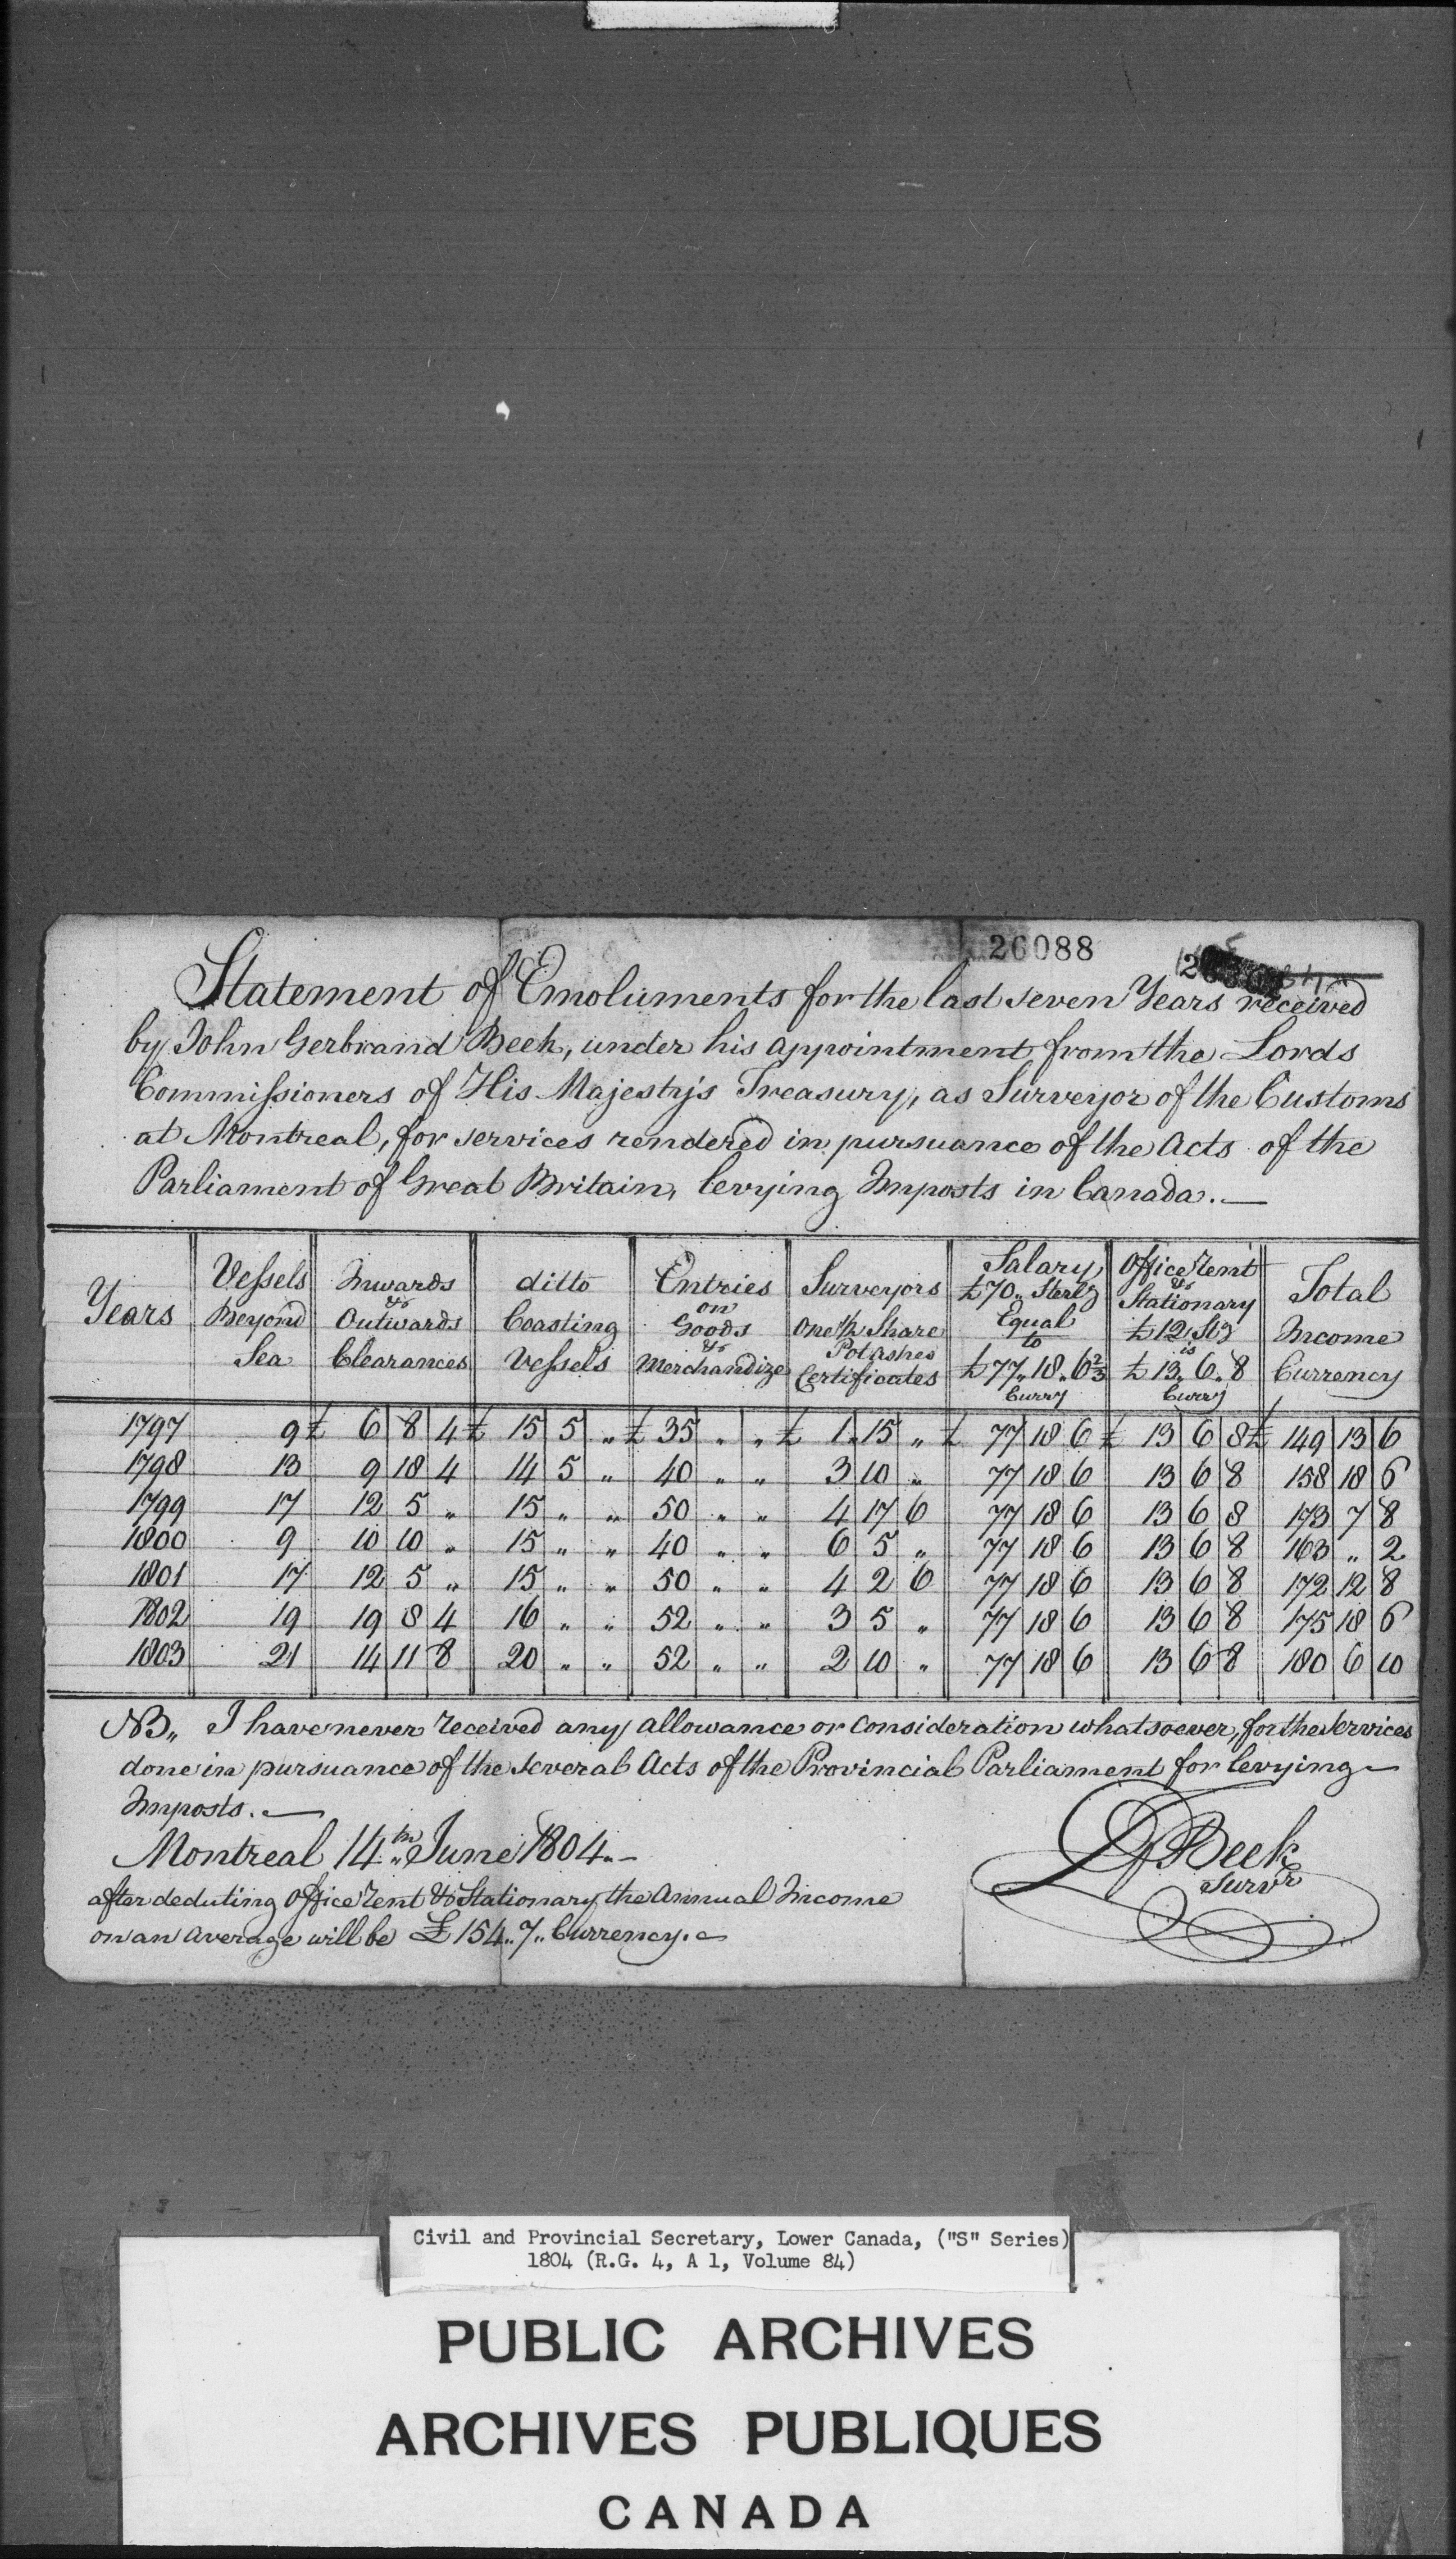 26088
Statement of Emoluments for the last seven Years received
by John Gerbrand Beek, under his appointment from the Lords
Commissioners of His Majesty's Treasury, as Surveyor of the Customs
at Montreal, for services rendered in pursuance of the Acts of the
Parliament of Great Britain, levying Imposts in Canada.—
Years | Vessels Beyond Sea | Inwards & Outwards Clearances | ditto Coasting Vessels | Entries on Goods & Merchandize | Surveyors One ⅓ Share Potashes Certificates | Salary £70.. Sterlg Equal to £77..18..6⅔ Curry | Office Rent & Stationary £12 Stg is £13..6..8 Curry | Total Income Currency
1797 | 9 | £ 6 8 4 | £ 15 5 „ | £ 35 „ „ | £ 1 15 „ | £ 77 18 6 | £ 13 6 8 | £ 149 13 6
1798 | 13 | 9 18 4 | 14 5 „ | 40 „ „ | 3 10 „ | 77 18 6 | 13 6 8 | 158 18 6
1799 | 17 | 12 5 „ | 15 „ „ | 50 „ „ | 4 17 6 | 77 18 6 | 13 6 8 | 173 7 8
1800 | 9 | 10 10 „ | 15 „ „ | 40 „ „ | 6 5 „ | 77 18 6 | 13 6 8 | 163 „ 2
1801 | 17 | 12 5 „ | 15 „ „ | 50 „ „ | 4 2 6 | 77 18 6 | 13 6 8 | 172 12 8
1802 | 19 | 19 8 4 | 16 „ „ | 52 „ „ | 3 5 „ | 77 18 6 | 13 6 8 | 175 18 6
1803 | 21 | 14 11 8 | 20 „ „ | 52 „ „ | 2 10 „ | 77 18 6 | 13 6 8 | 180 6 10
NB„ I have never received any allowance or consideration whatsoever, for the services
done in pursuance of the several Acts of the Provincial Parliament for levying
Imposts.—
Montreal 14th June 1804.–
JG Beek
Survr
after deduting Office rent & Stationary the Annual Income
on an average will be £154..7.. Currency.
Civil and Provincial Secretary, Lower Canada, ("S" Series)
1804 (R.G. 4, A 1, Volume 84)
PUBLIC ARCHIVES
ARCHIVES PUBLIQUES
CANADA